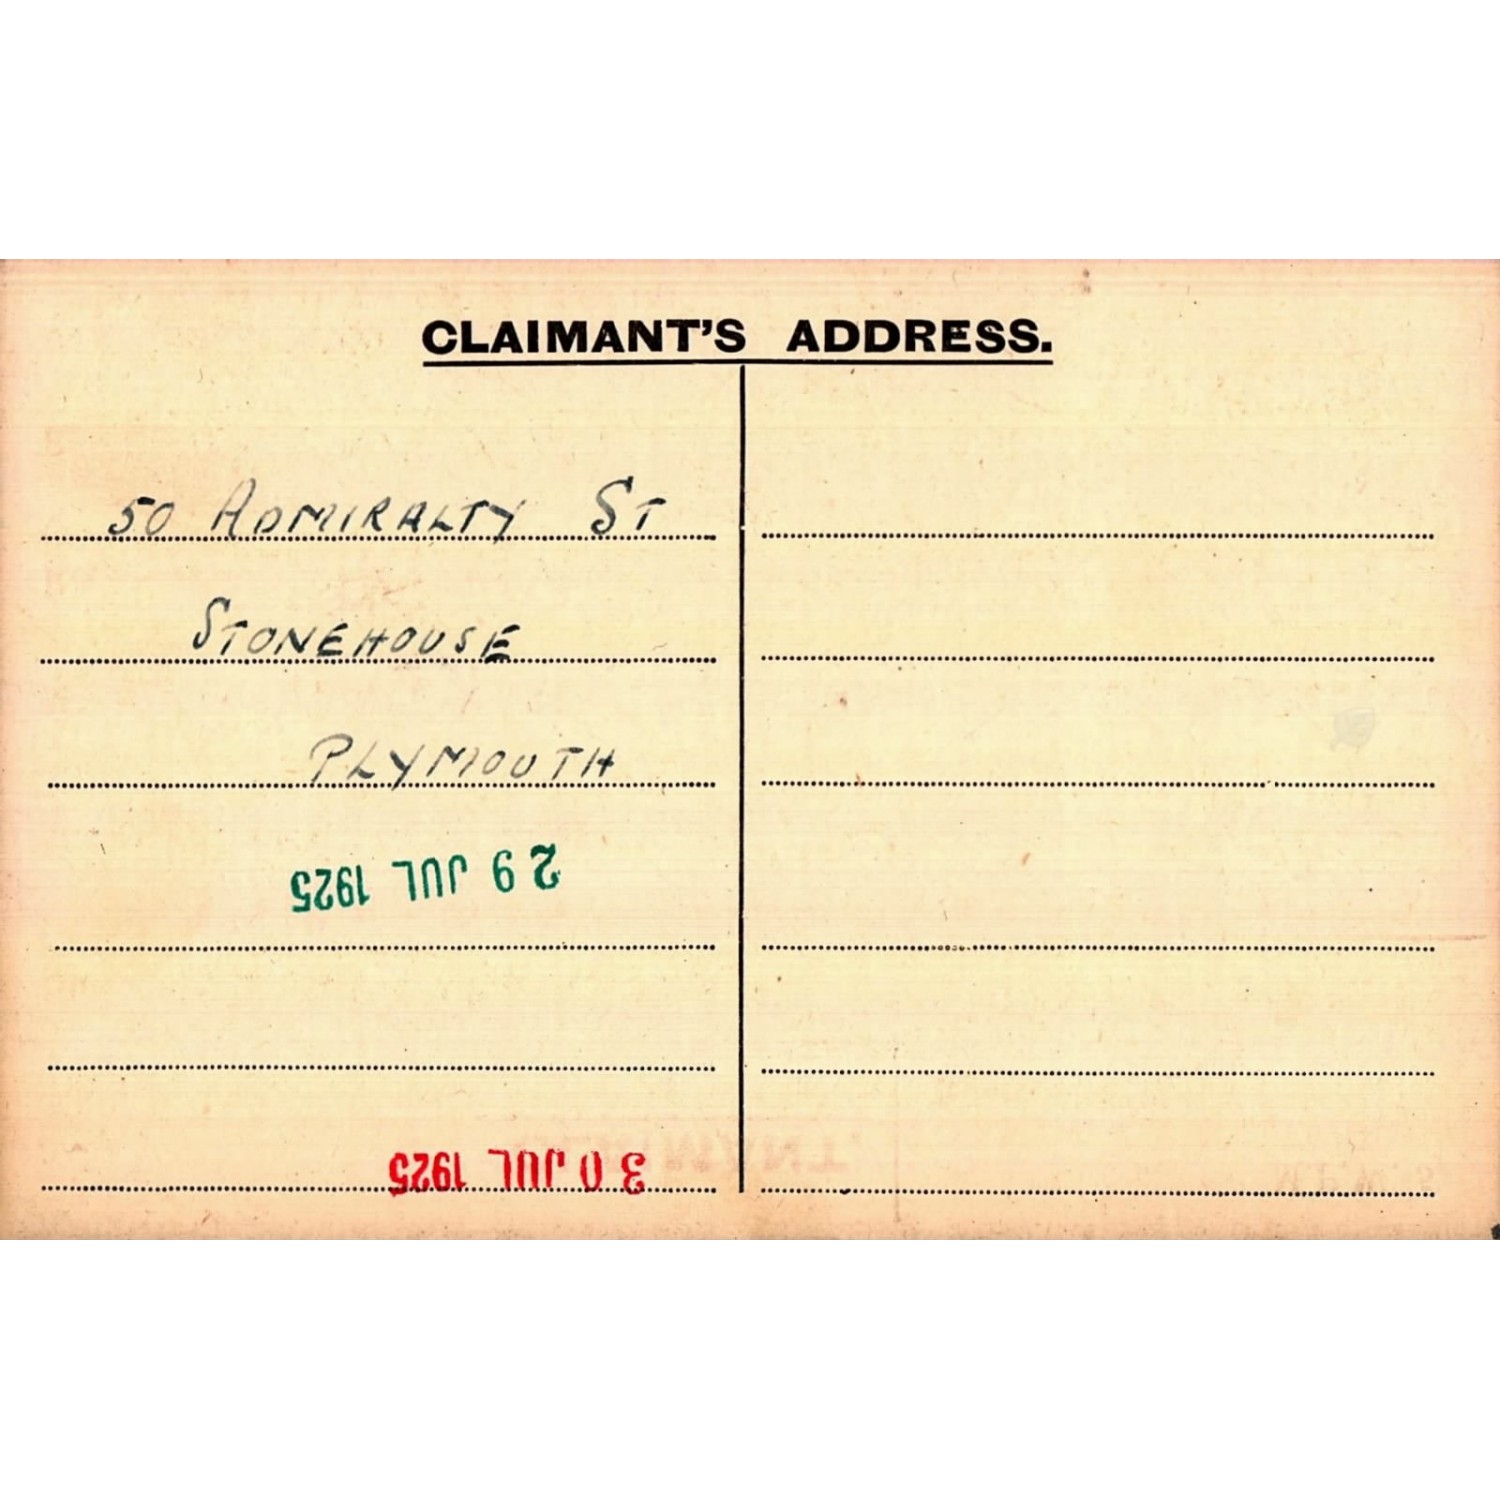 CLAIMANT'S ADDRESS.
50 ADMIRALTY ST
STONEHOUSE
PLYMOUTH
29 JUL 1925
30 JUL 1925